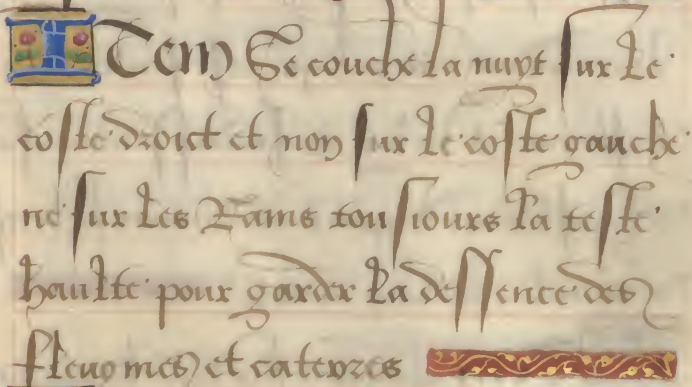 Item Se couche la nuyt sur le
coste droict et non sur le coste gauche
ne sur les Rains tousiours la teste
haulte pour garder la dessence des
fleugmes et caterres